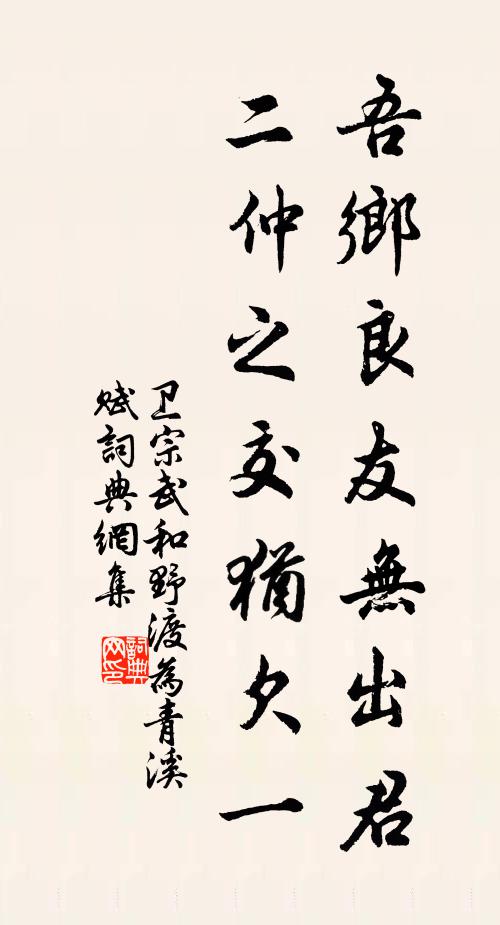 吾鄉良友無出君
二仲之交猶欠一
卫宗武和野渡為青溪
賦詞典網集
詞典網印